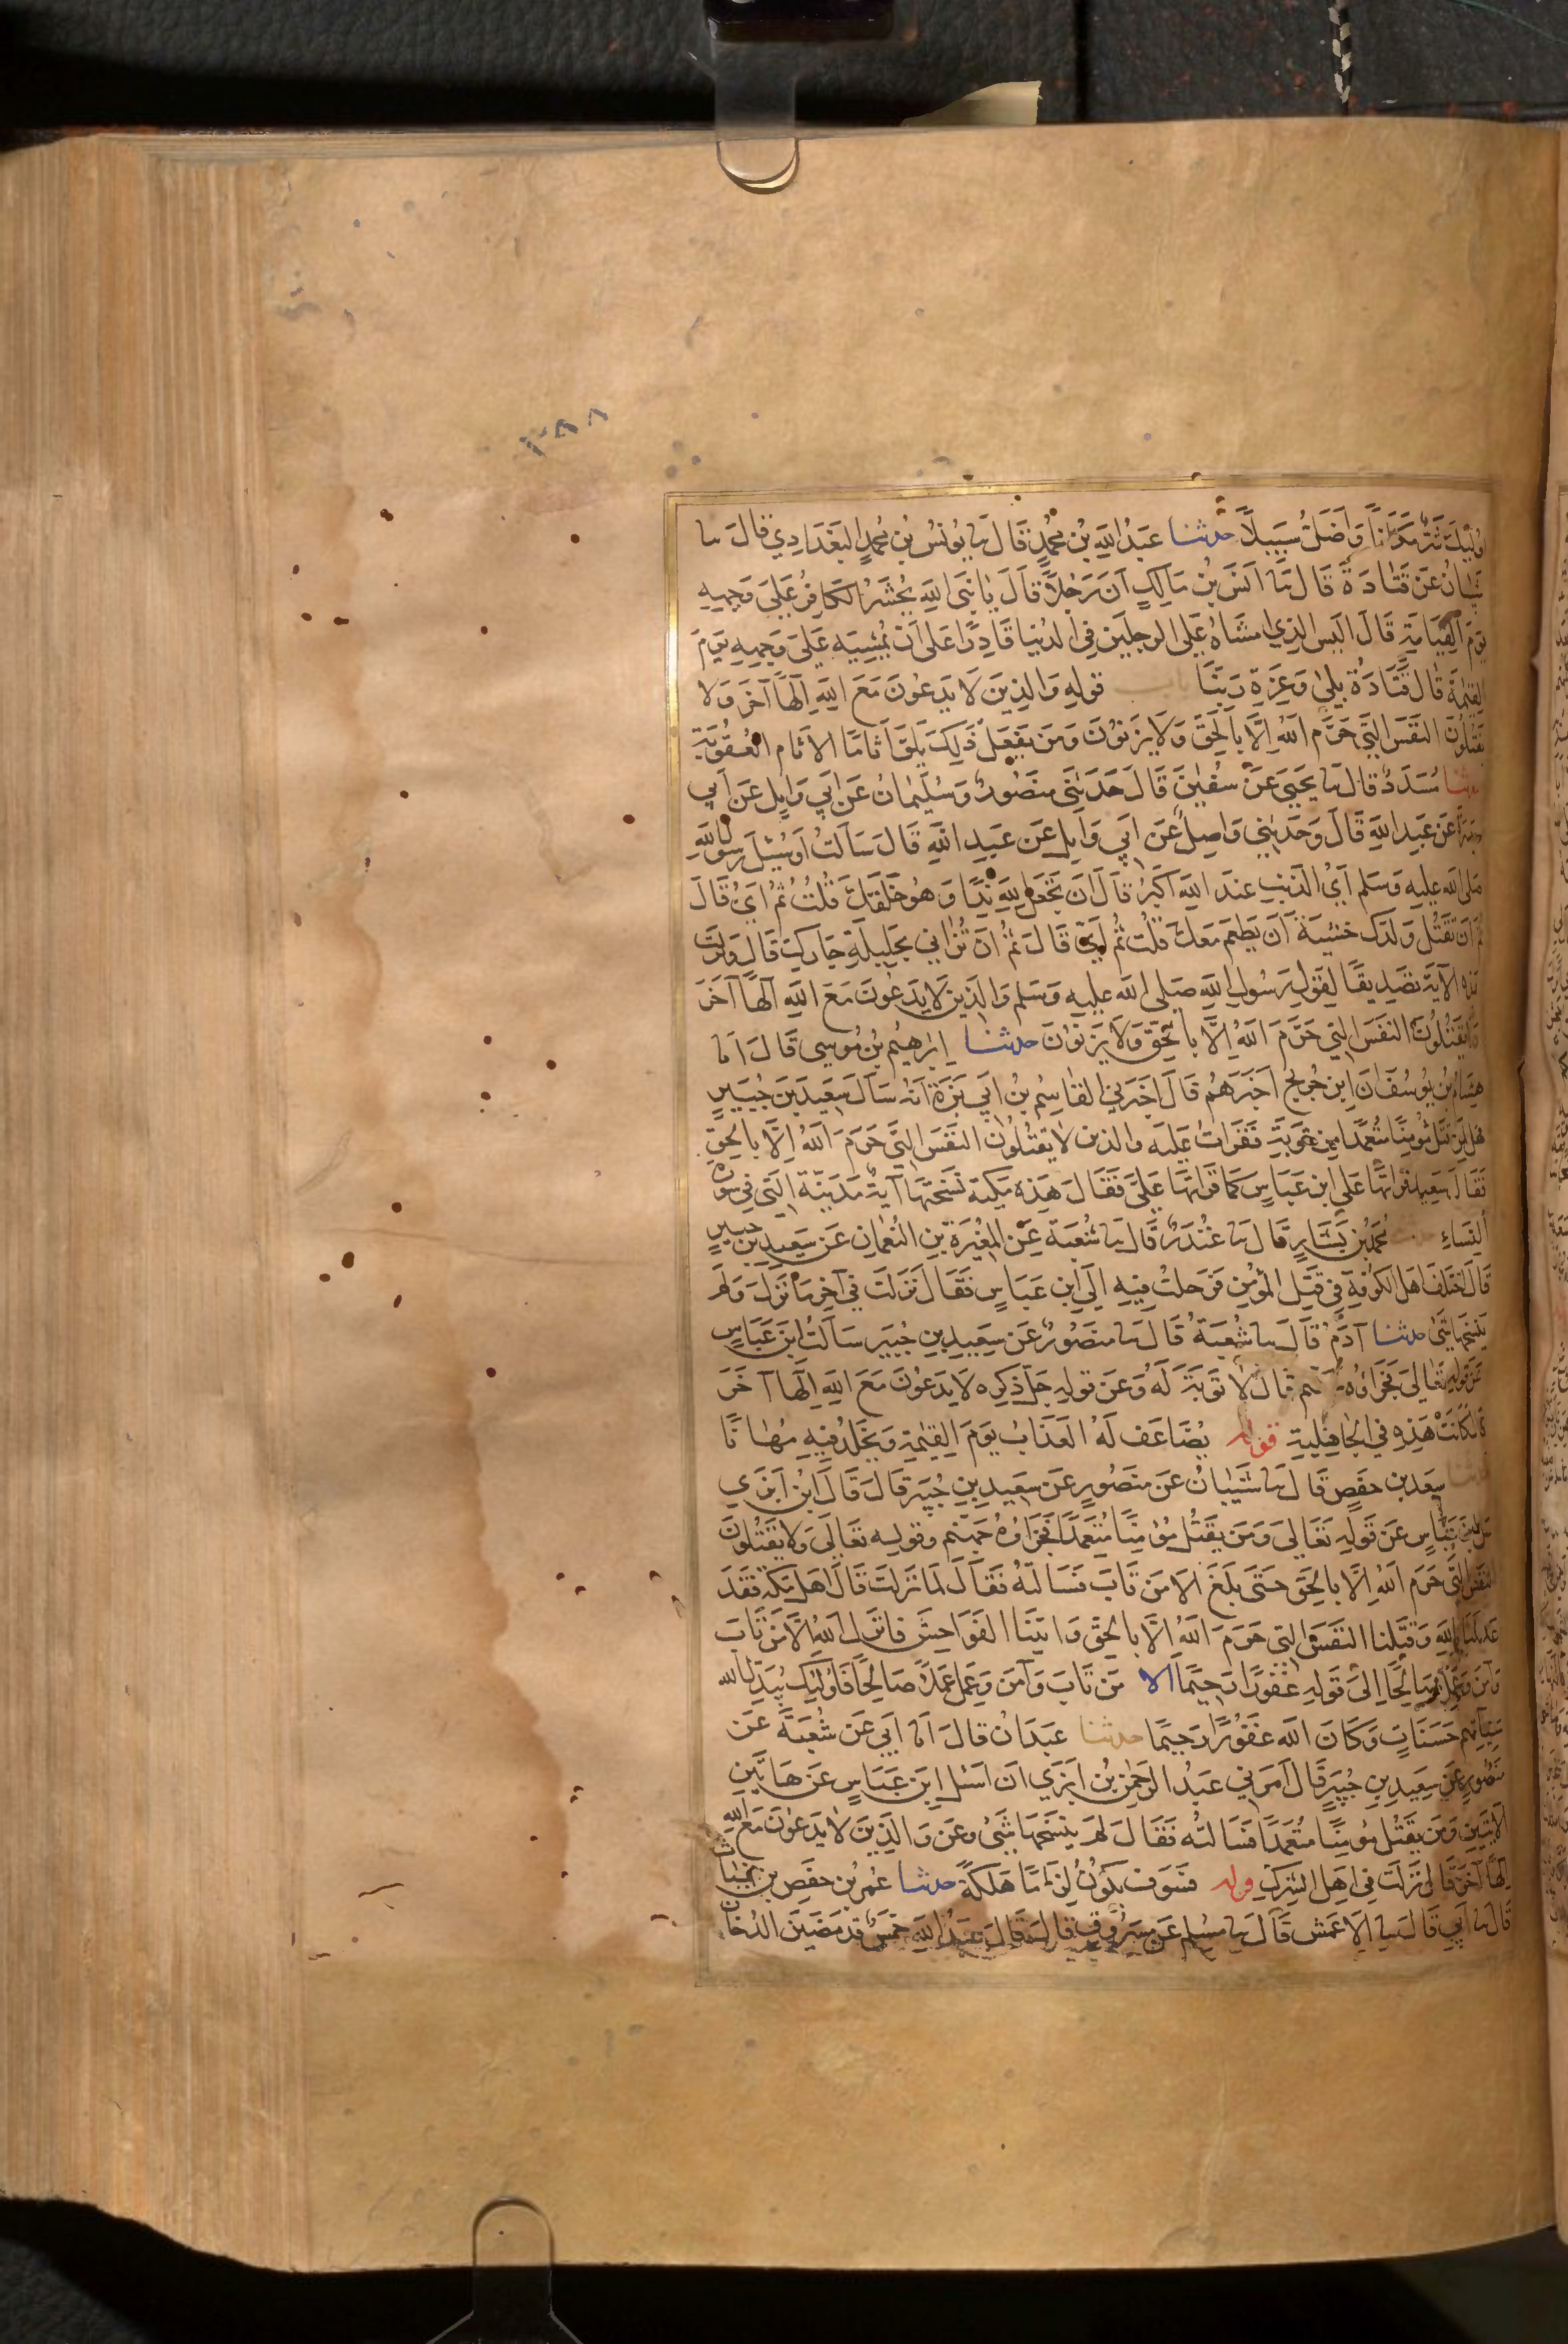 ٣٨٨
اولئك شر مكانا واضل سبيلا حدثنا عبد الله بن محمد قال نا يونس بن محمد البغدادي قال نا
شيبان عن قتادة قال نا انس بن مالك ان رجلا قال يا نبي الله يحشر الكافر على وجهه
يوم القيامة قال اليس الذي امشاه على الرجلين في الدنيا قادرا على ان يمشيه على وجهه يوم
القيمة قال قتادة بلى وعزة ربنا باب قوله والذين لا يدعون مع الله الها آخر ولا
يقتلون النفس التي حرم الله الا بالحق ولا يزنون ومن يفعل ذلك يلق اثاما الاثام العقوبة
حدثنا مسدد قال نا يحيى عن سفين قال حدثني منصور وسليمان عن ابي وايل عن ابي
ميسرة عن عبد الله قال وحدثني واصل عن ابي وايل عن عبد الله قال سالت او سئل رسول الله
صلى الله عليه وسلم اي الذنب عند الله اكبر قال ان تجعل لله ندا وهو خلقك قلت ثم اي قال
ثم ان تقتل ولدك خشية ان يطعم معك قلت ثم اي قال ثم ان تزاني بحليلة جارك قال ونزلت
هذه الآية تصديقا لقول رسول الله صلى الله عليه وسلم والذين لا يدعون مع الله الها آخر
ولا يقتلون النفس التي حرم الله الا بالحق ولا يزنون حدثنا ابرهيم بن موسى قال انا
هشام بن يوسف ان ابن جريج اخبرهم قال اخبرني القاسم بن ابي بزة انه سال سعيد بن جبير
هل لمن قتل مؤمنا متعمدا من توبة فقرات عليه والذين لا يقتلون النفس التي حرم الله الا بالحق
فقال سعيد قراتها على ابن عباس كما قراتها علي فقال هذه مكية نسختها آية مدينة التي في سورة
النساء حدثنا محمد بن بشار قال نا غندر قال نا شعبة عن المغيرة بن النعمان عن سعيد بن جبير
قال اختلف اهل الكوفة في قتل المؤمن فرحلت فيه الى ابن عباس فقال نزلت في آخر ما نزل ولم
ينسخها شئ حدثنا آدم قال نا شعبة قال نا منصور عن سعيد بن جبير سالت ابن عباس
عن قوله تعالى فجزاؤه جهنم قال لا توبة له وعن قوله جل ذكره لا يدعون مع الله الها آخر
قال كانت هذه في الجاهلية قوله يضاعف له العذاب يوم القيمة ويخلد فيه مهانا
حدثنا سعد بن حفص قال نا شيبان عن منصور عن سعيد بن جبير قال قال ابن ابزي
سل ابن عباس عن قوله تعالى ومن يقتل مؤمنا متعمدا فجزاؤه جهنم وقوله تعالى ولا يقتلون
النفس التي حرم الله الا بالحق حتى بلغ الا من تاب فسالته فقال لما نزلت قال اهل مكة فقد
عدلنا بالله وقتلنا النفس التي حرم الله الا بالحق واتينا الفواحش فانزل الله الا من تاب
وآمن وعمل صالحا الى قوله غفورا رحيما الا من تاب وآمن وعمل عملا صالحا فاولئك يبدل الله
سيئاتهم حسنات وكان الله غفورا رحيما حدثنا عبدان قال انا ابي عن شعبة عن
منصور عن سعيد بن جبير قال امرني عبد الرحمن بن ابزي ان اسئل ابن عباس عن هاتين
الآيتين ومن يقتل مؤمنا متعمدا فسالته فقال لم ينسخها شئ وعن والذين لا يدعون مع الله
الها آخر قال نزلت في اهل الشرك قوله فسوف يكون لزاما هلكة حدثنا عمر بن حفص بن غياث
قال نا ابي قال نا الاعمش قال نا مسلم عن مسروق قال قال عبد الله خمس قد مضين الدخان